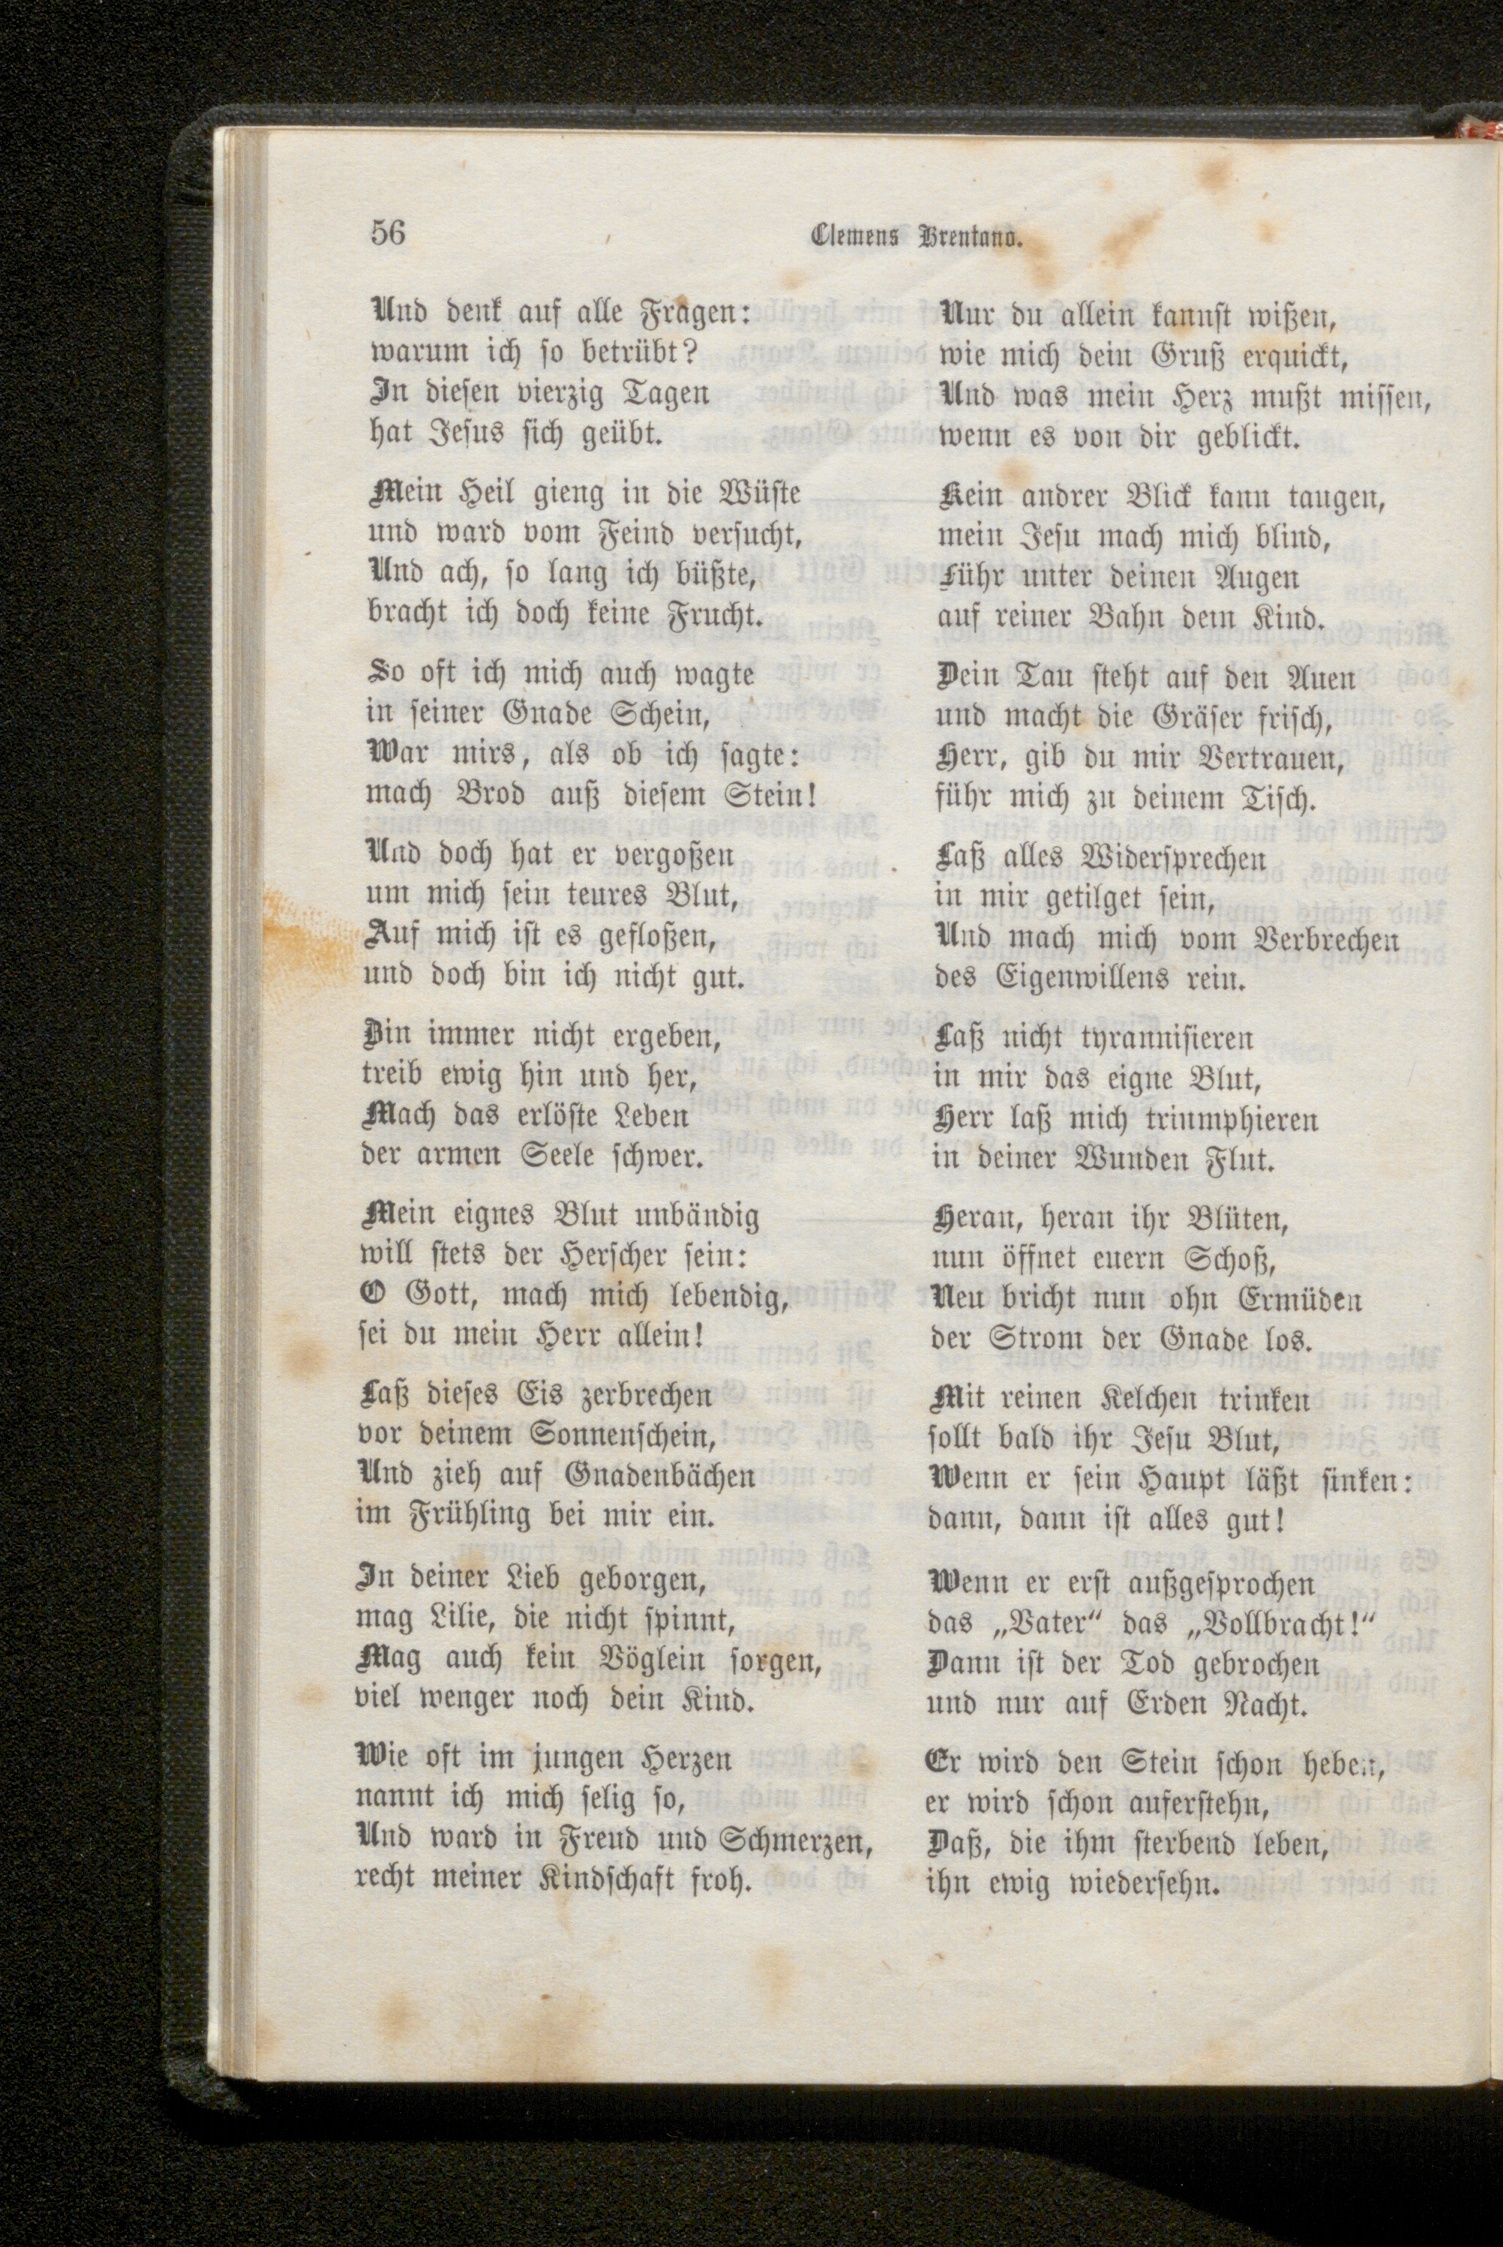 56
Clemens Brentano.
Und denk auf alle Fragen:
warum ich so betrübt?
In diesen vierzig Tagen
hat Jesus sich geübt.
Mein Heil gieng in die Wüste
und ward vom Feind versucht,
Und ach, so lang ich büßte,
bracht ich doch keine Frucht.
So oft ich mich auch wagte
in seiner Gnade Schein,
War mirs, als ob ich sagte:
mach Brod auß diesem Stein!
Und doch hat er vergoßen
um mich sein teures Blut,
Auf mich ist es gefloßen,
und doch bin ich nicht gut.
Bin immer nicht ergeben,
treib ewig hin und her,
Mach das erlöste Leben
der armen Seele schwer.
Mein eignes Blut unbändig
will stets der Herscher sein:
O Gott, mach mich lebendig,
sei du mein Herr allein!
Laß dieses Eis zerbrechen
vor deinem Sonnenschein,
Und zieh auf Gnadenbächen
im Frühling bei mir ein.
In deiner Lieb geborgen,
mag Lilie, die nicht spinnt,
Mag auch kein Vöglein sorgen,
viel wenger noch dein Kind.
Wie oft im jungen Herzen
nannt ich mich selig so,
Und ward in Freud und Schmerzen,
recht meiner Kindschaft froh.
Nur du allein kannst wißen,
wie mich dein Gruß erquickt,
Und was mein Herz mußt missen,
wenn es von dir geblickt.
Kein andrer Blick kann taugen,
mein Jesu mach mich blind,
Führ unter deinen Augen
auf reiner Bahn dein Kind.
Dein Tau steht auf den Auen
und macht die Gräser frisch,
Herr, gib du mir Vertrauen,
führ mich zu deinem Tisch.
Laß alles Widersprechen
in mir getilget sein,
Und mach mich vom Verbrechen
des Eigenwillens rein.
Laß nicht tyrannisieren
in mir das eigne Blut,
Herr laß mich triumphieren
in deiner Wunden Flut.
Heran, heran ihr Blüten,
nun öffnet euern Schoß,
Neu bricht nun ohn Ermüden
der Strom der Gnade los.
Mit reinen Kelchen trinken
sollt bald ihr Jesu Blut,
Wenn er sein Haupt läßt sinken:
dann, dann ist alles gut!
Wenn er erst außgesprochen
das „Vater“ das „Vollbracht!“
Dann ist der Tod gebrochen
und nur auf Erden Nacht.
Er wird den Stein schon heben,
er wird schon auferstehn,
Daß, die ihm sterbend leben,
ihn ewig wiedersehn.